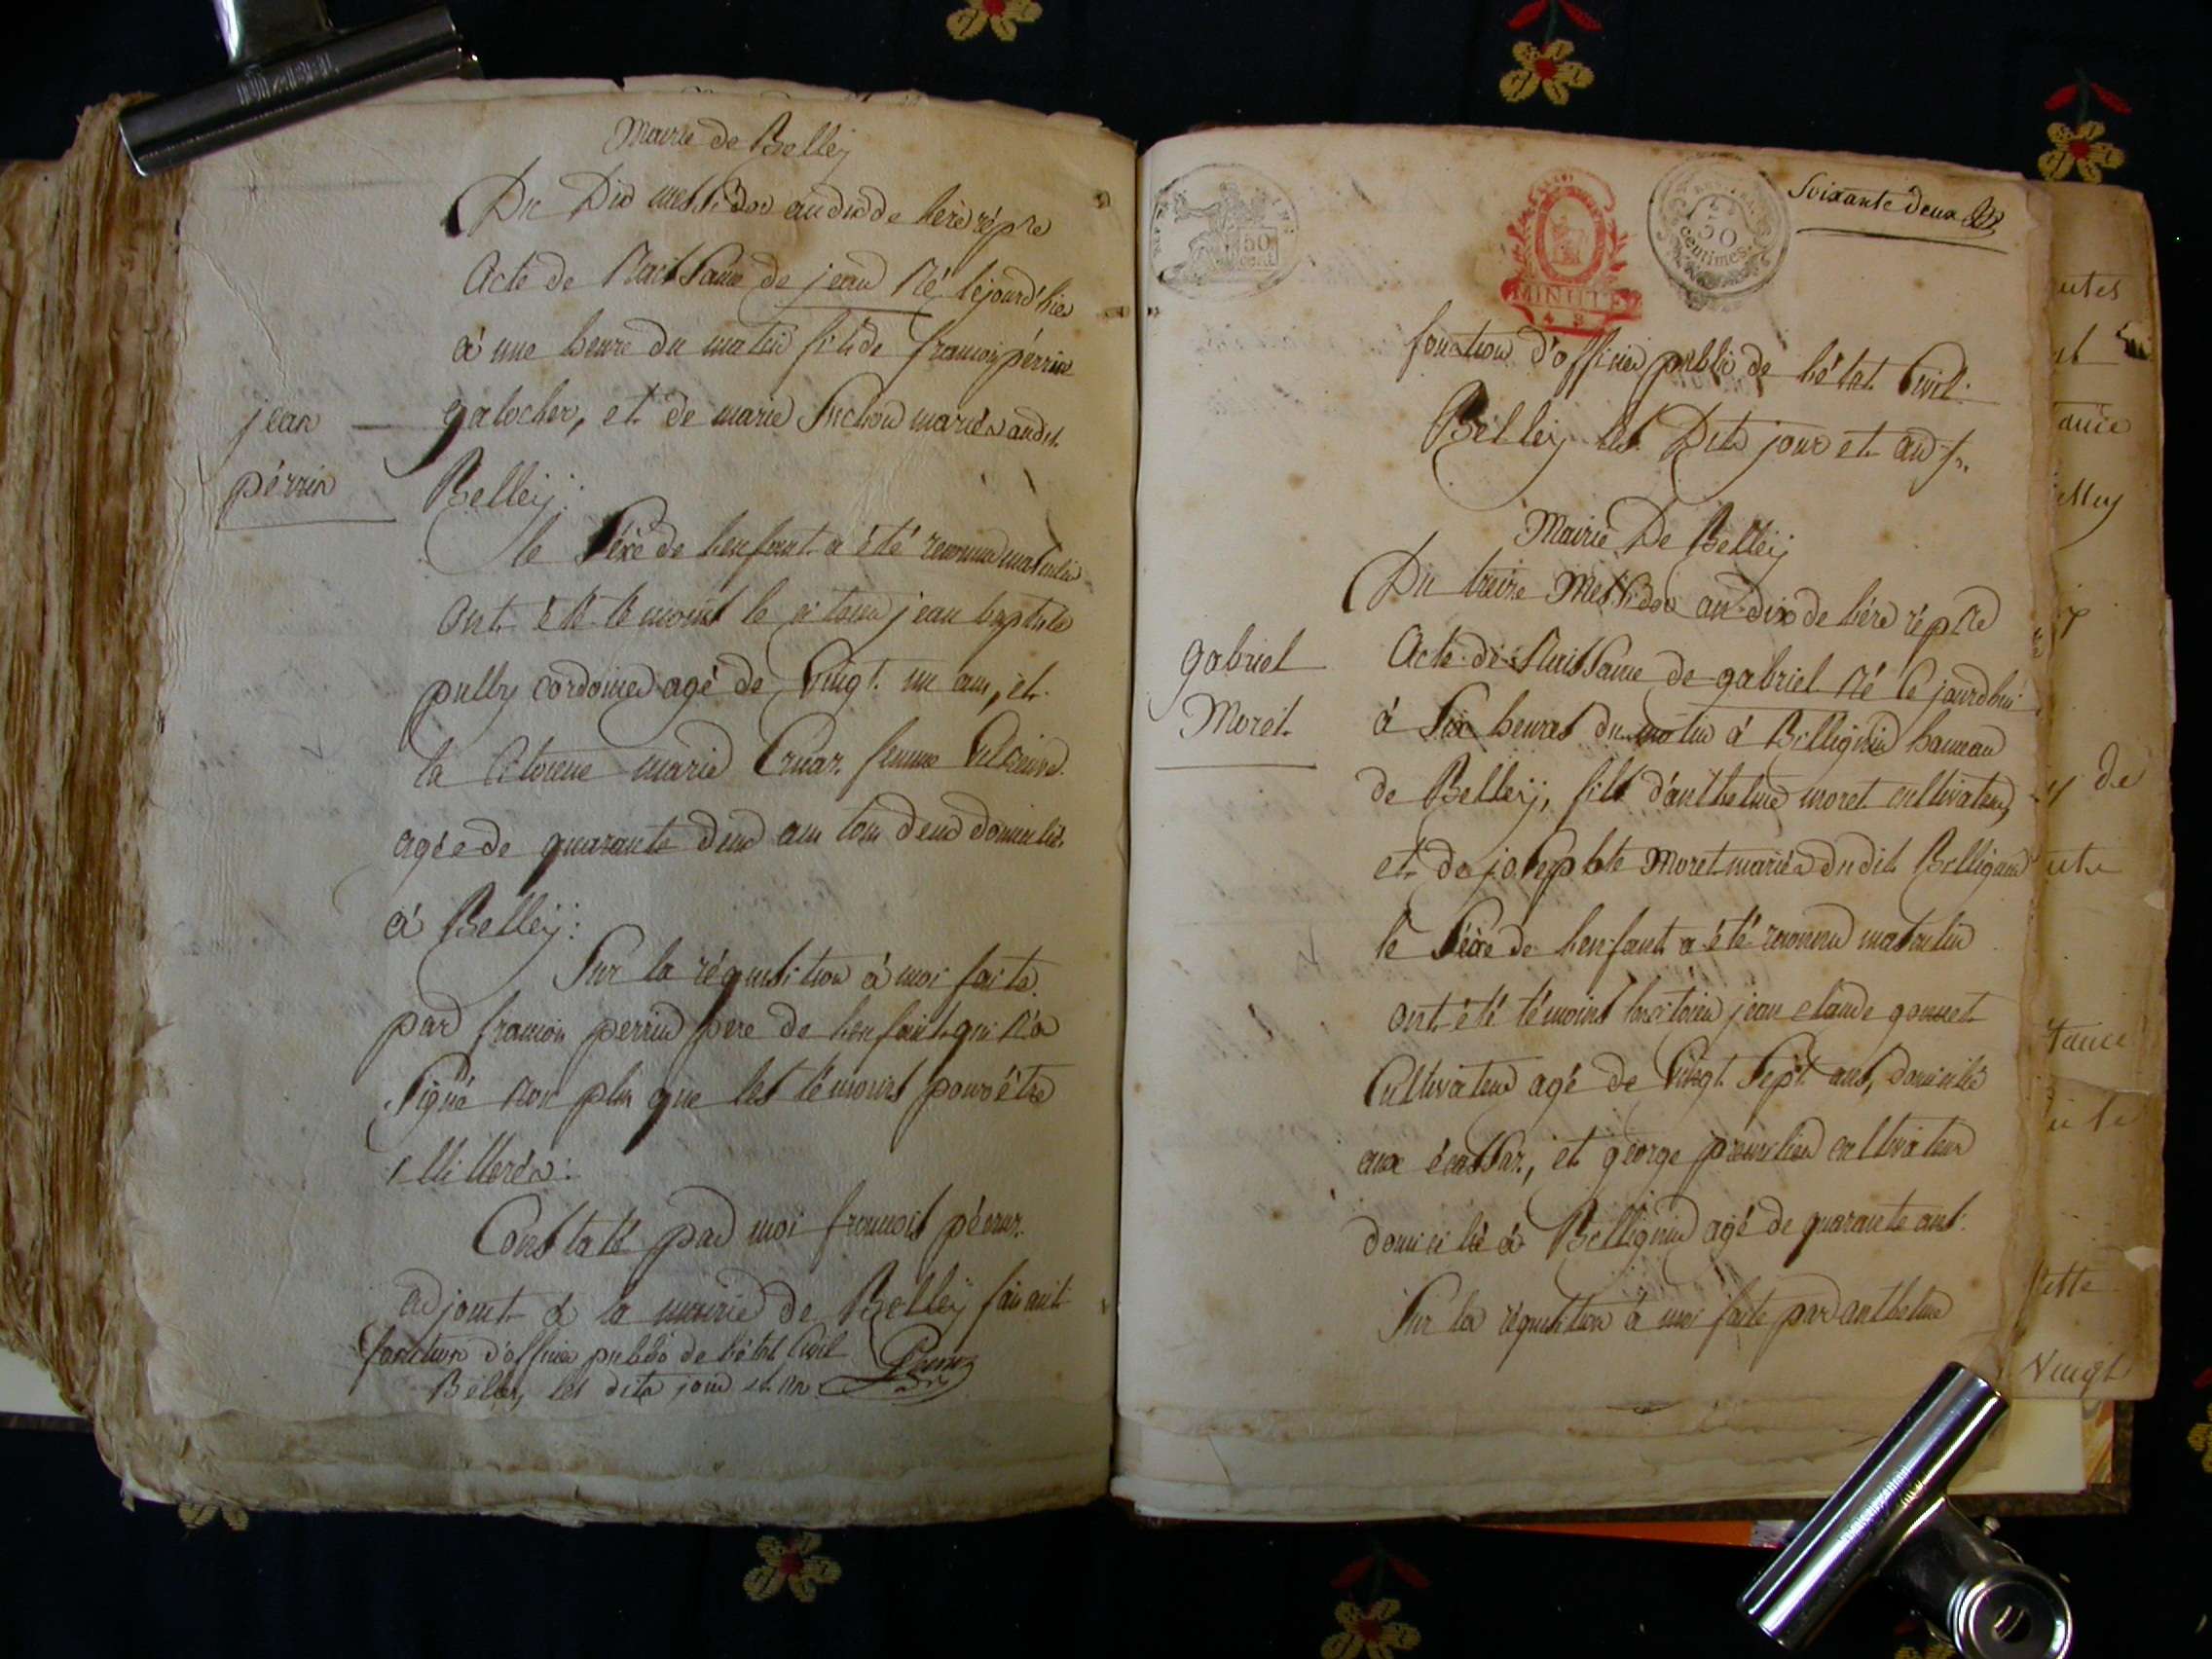 Mairie de Belleÿ
Du Dix messidor an dix de l'ère répre
Acte de Naissance de jean Né lejourd'hier
à une heure du matin fils de francois pérrin
galocher, et de marie Suchon mariés audit
jean
pérrin
Belleÿ:
le Séxe de l'enfant a été reconnu masculin
Ont été témoins le citoien jean baptiste
pulby cordonier agé de Vingt un ans, et
la Citoienne marie Cruaz femme
agée de quarante deux ans tous deux domiciliés
à Belleÿ:
Sur la réquisition à moi faite
par francois perrin pere de l'enfant qui n'a
Signé non plus que les témoins pour être
illitterés:
Constaté par moi francois pécruz
adjoint à la mairie de Belleÿ faisant
fonction d'officier public de l'état Civil
Belley les dits jour et an.
50
cent
MINUTE
50
centimes
Soixante deux
fonction d'officier public de l'état Civil
Belleÿ les Dits jour et an
Mairie De Belleÿ
Du treize Messidor an dix de l'ére répre
gabriel
Moret
Acte de Naissance de gabriel né le jourd'hui
à Six heures du matin à Billignin hameau
de Belleÿ, fils d'anthelme moret cultivateur,
et de josephte Moret mariés dudit Billignin
le Séxe de l'enfant a été reconnu masculin
ont été témoins les citoien jean claude gonnet
Cultivateur agé de Vingt Sept ans, domicilié
aux écassaz, et george cultivateur
domicilié à Billignin agé de quarante ans.
Sur la réquisition à moi faite par anthelme
utes
ance
elley
de
tance
Vingt